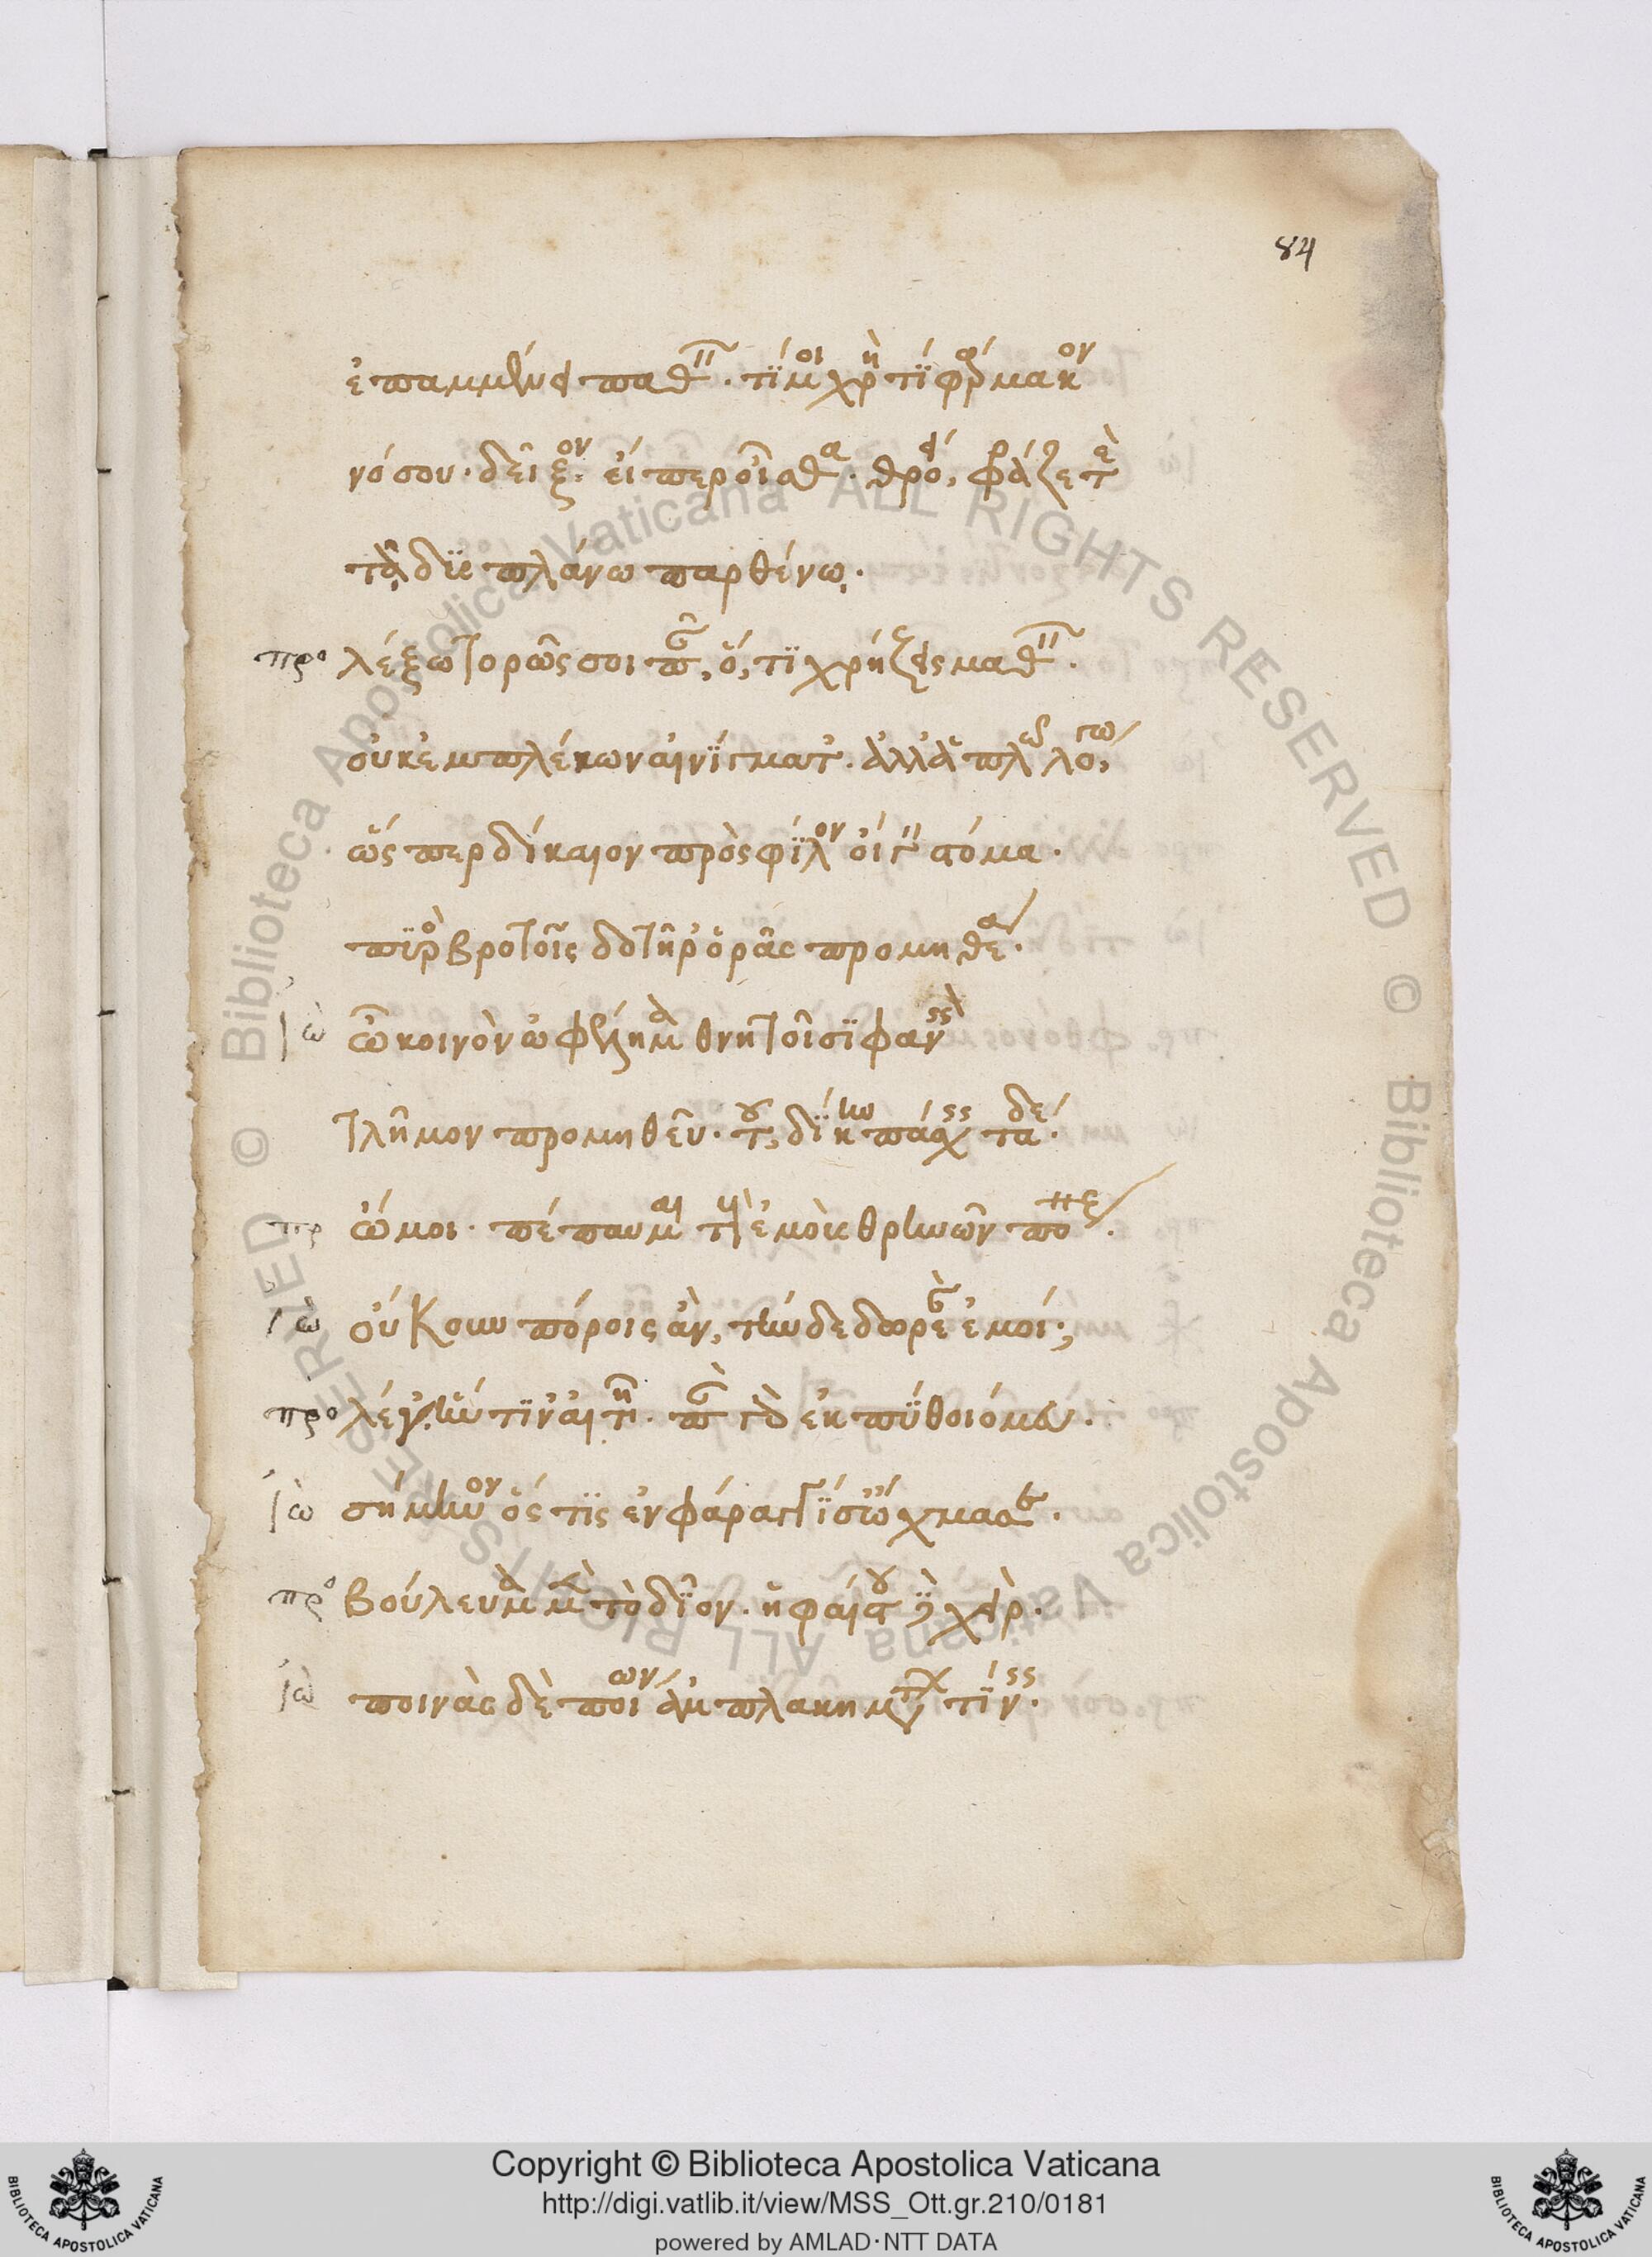 84
ἐπαμμένει παθεῖν. τί μοι χρὴ τί φάρμακον
νόσου. δεῖξον. εἴπερ οἶσθα. θρόει, φράζετε
τᾷ δυσπλάνω παρθένω.
προ λέξω τορῶς σοι πᾶν, ὅ,τι χρήζεις μαθεῖν.
οὐκ ἐμπλέκων αἰνίγματ'. ἀλλ' ἁπλῶ λόγω,
ὥσπερ δίκαιον πρὸς φίλους οἴγειν στόμα.
πυρὸς βροτοῖς δοτῆρ' ὁρᾶς προμηθέα.
ἰὼ ὦ κοινὸν ὠφέλημα θνητοῖσι φανεὶς
τλῆμον προμηθεῦ. τοῦ, δίκην πάσχεις τάδε.
πρ ὤμοι. πέπαυμαι τοὺς ἐμοὺς θρηνῶν πόνους.
ἰὼ οὔκουν πόροις ἂν, τήνδε δωρεὰν ἐμοί;
προ λέγ' ἥντιν' αἰτῆ. πᾶν γὰρ ἐκπύθοιό μου.
ἰὼ σήμηνον ὅστις ἐν φάραγγί σ' ὤχμασε.
προ βούλευμα μὲν τὸ δῖον. ἡφαίστου δὲ χείρ.
ἰὼ ποινὰς δὲ ποίων ἀμπλακημάτων τίνεις.
Copyright © Biblioteca Apostolica Vaticana
http://digi.vatlib.it/view/MSS_Ott.gr.210/0181
powered by AMLAD·NTT DATA
© Biblioteca Apostolica Vaticana ALL RIGHTS RESERVED © Biblioteca Apostolica Vaticana ALL RIGHTS RESERVED
BIBLIOTECA APOSTOLICA VATICANA
BIBLIOTECA APOSTOLICA VATICANA